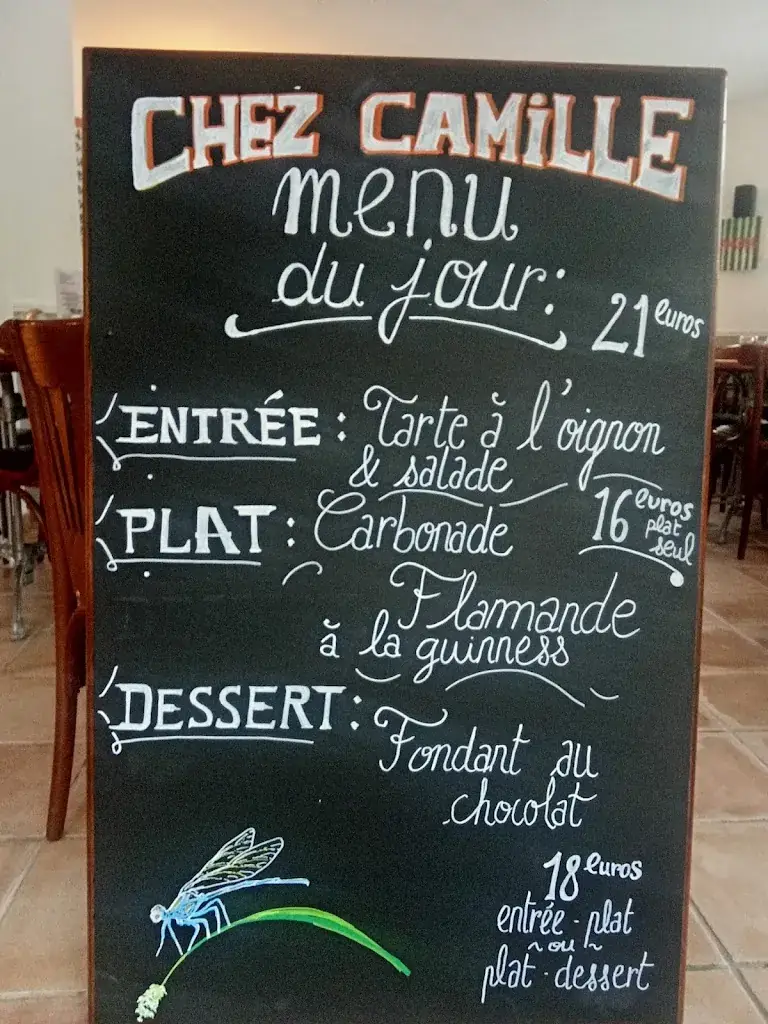 CHEZ CAMiLLE
menu
du jour:
21 euros
ENTRÉE : Tarte à l'oignon
& salade
PLAT : Carbonade
16 euros
plat
seul
Flamande
à la guinness
DESSERT :
Fondant au
chocolat
18 euros
entrée - plat
~ ou ~
plat - dessert